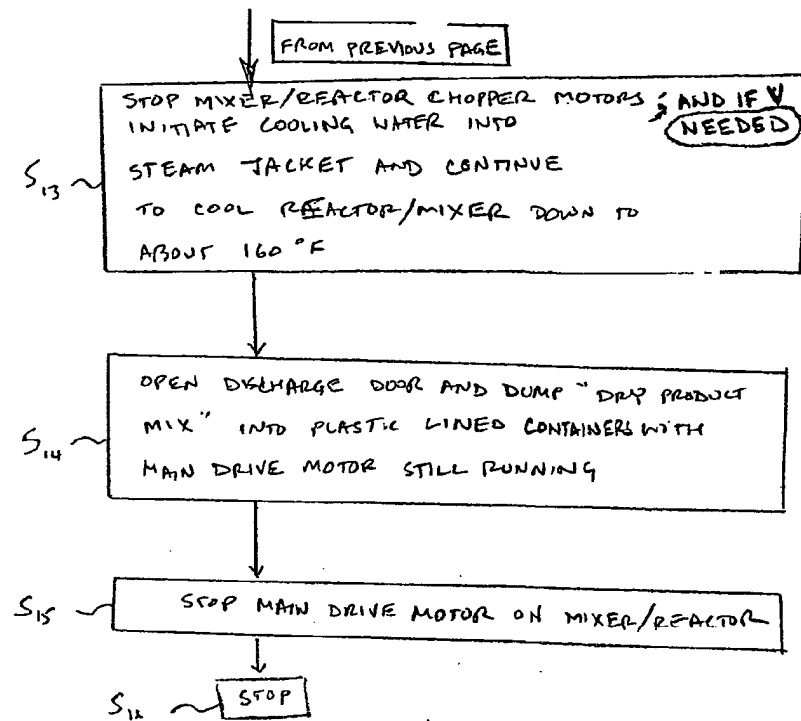 FROM PREVIOUS PAGE
STOP MIXER/REACTOR CHOPPER MOTORS; AND IF
NEEDED
INITIATE COOLING WATER INTO
S13
STEAM JACKET AND CONTINUE
TO COOL REACTOR/MIXER DOWN TO
ABOUT 160 °F
OPEN DISCHARGE DOOR AND DUMP "DRY PRODUCT
MIX" INTO PLASTIC LINED CONTAINERS WITH
S14
MAIN DRIVE MOTOR STILL RUNNING
S15
STOP MAIN DRIVE MOTOR ON MIXER/REACTOR
STOP